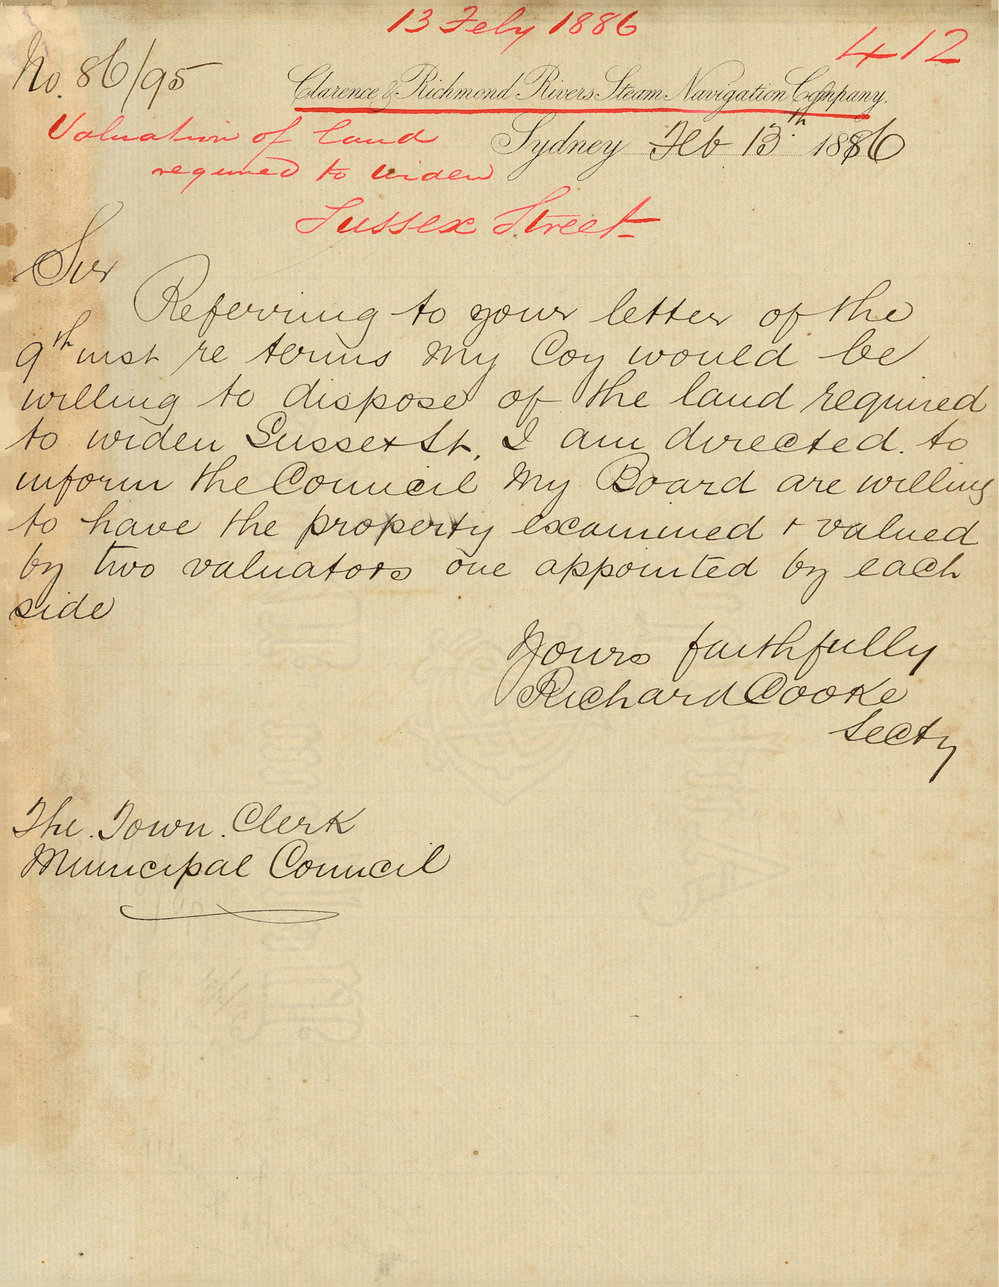 13 Feby 1886
412
No. 86/95
Clarence & Richmond Rivers Steam Navigation Company.
Valuation of land
required to widen
Sussex Street
Sydney Feb 13th 1886
Sir
Referring to your letter of the
9th inst re terms my Coy would be
willing to dispose of the land required
to widen Sussex St, I am directed to
inform the Council my Board are willing
to have the property examined & valued
by two valuators one appointed by each
side
Yours faithfully
Richard Cooke
Secty
The Town Clerk
Municipal Council